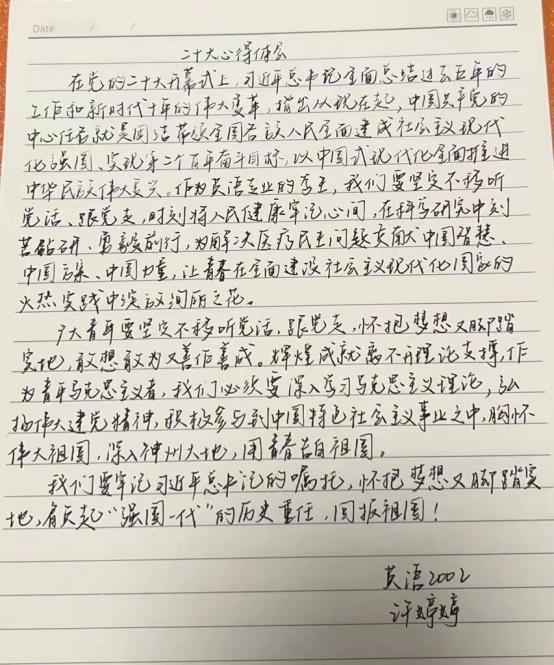 Date
二十大心得体会
在党的二十大开幕式上，习近平总书记全面总结过去五年的
工作和新时代十年的伟大变革，指出从现在起，中国共产党的
中心任务就是团结带领全国各族人民全面建成社会主义现代
化强国、实现第二个百年奋斗目标，以中国式现代化全面推进
中华民族伟大复兴。作为英语专业的学生，我们要坚定不移听
党话、跟党走，时刻将人民健康牢记心间，在科学研究中刻
苦钻研、勇毅前行，为解决医疗民生问题贡献中国智慧、
中国方案、中国力量，让青春在全面建设社会主义现代化国家的
火热实践中绽放绚丽之花。
广大青年要坚定不移听党话，跟党走，怀抱梦想又脚踏
实地，敢想敢为又善作善成。辉煌成就离不开理论支撑，作
为青年马克思主义者，我们必须要深入学习马克思主义理论，弘
扬伟大建党精神，积极参与到中国特色社会主义事业之中，胸怀
伟大祖国，深入神州大地，用青春告白祖国。
我们要牢记习近平总书记的嘱托，怀抱梦想又脚踏实
地，肩负起“强国一代”的历史重任，回报祖国！
英语2002
许婷婷